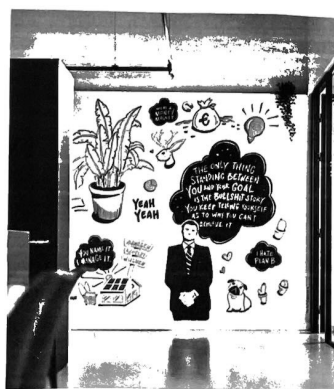 YEAH
YEAH
THE ONLY THING
STANDING BETWEEN
YOU AND YOUR GOAL
IS THE BULLSHIT STORY
YOU KEEP TELLING YOURSELF
AS TO WHY YOU CAN'T
ACHIEVE IT
YOU NAME IT
I MANAGE IT
I HATE
PLAN B